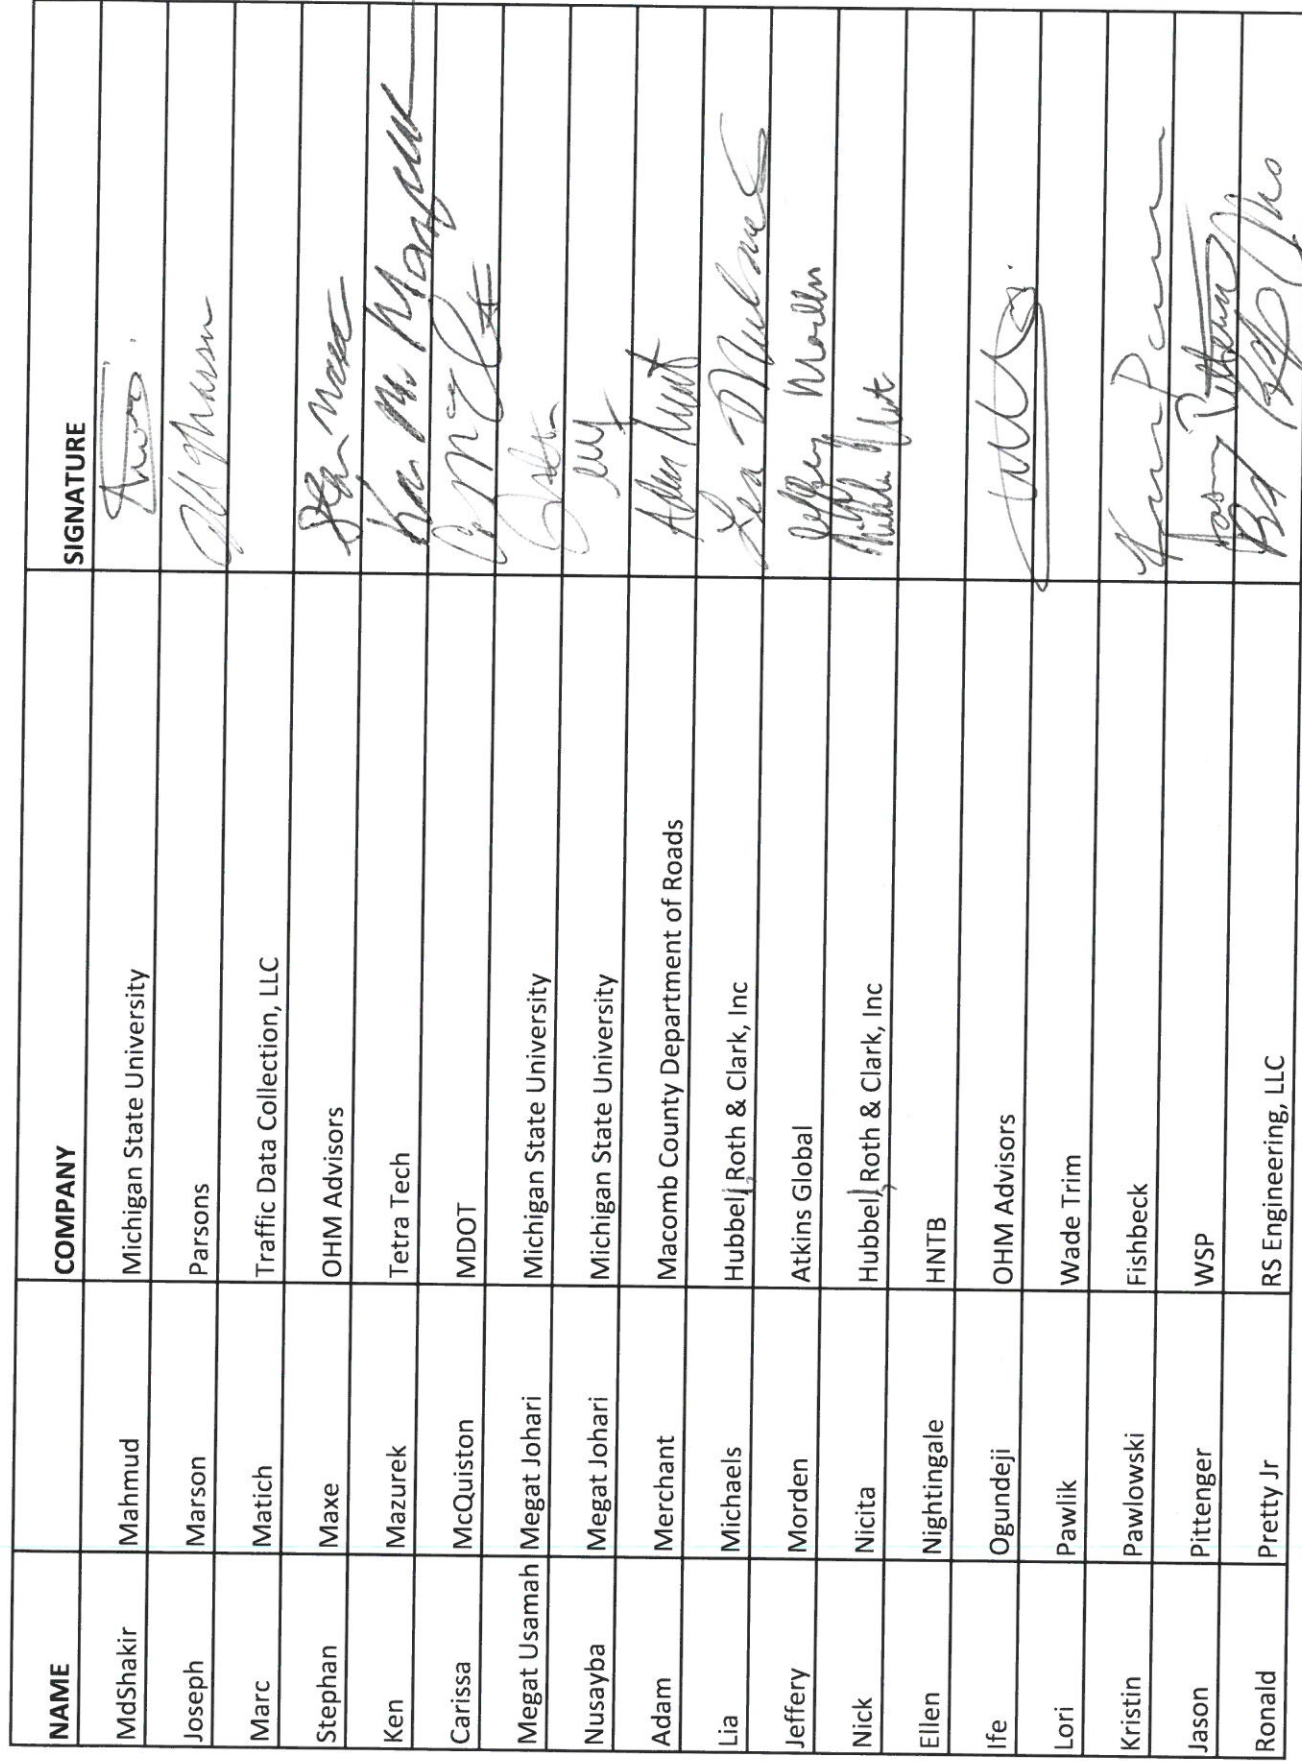 NAME COMPANY SIGNATURE
MdShakir Mahmud Michigan State University
Joseph Marson Parsons
Marc Matich Traffic Data Collection, LLC
Stephan Maxe OHM Advisors
Ken Mazurek Tetra Tech Ken M. Mazurek
Carissa McQuiston MDOT
Megat Usamah Megat Johari Michigan State University
Nusayba Megat Johari Michigan State University
Adam Merchant Macomb County Department of Roads
Lia Michaels Hubbell, Roth & Clark, Inc Lia Michaels
Jeffery Morden Atkins Global Jeffery Morden
Nick Nicita Hubbell, Roth & Clark, Inc
Ellen Nightingale HNTB
Ife Ogundeji OHM Advisors
Lori Pawlik Wade Trim
Kristin Pawlowski Fishbeck
Jason Pittenger WSP Jason Pittenger
Ronald Pretty Jr RS Engineering, LLC